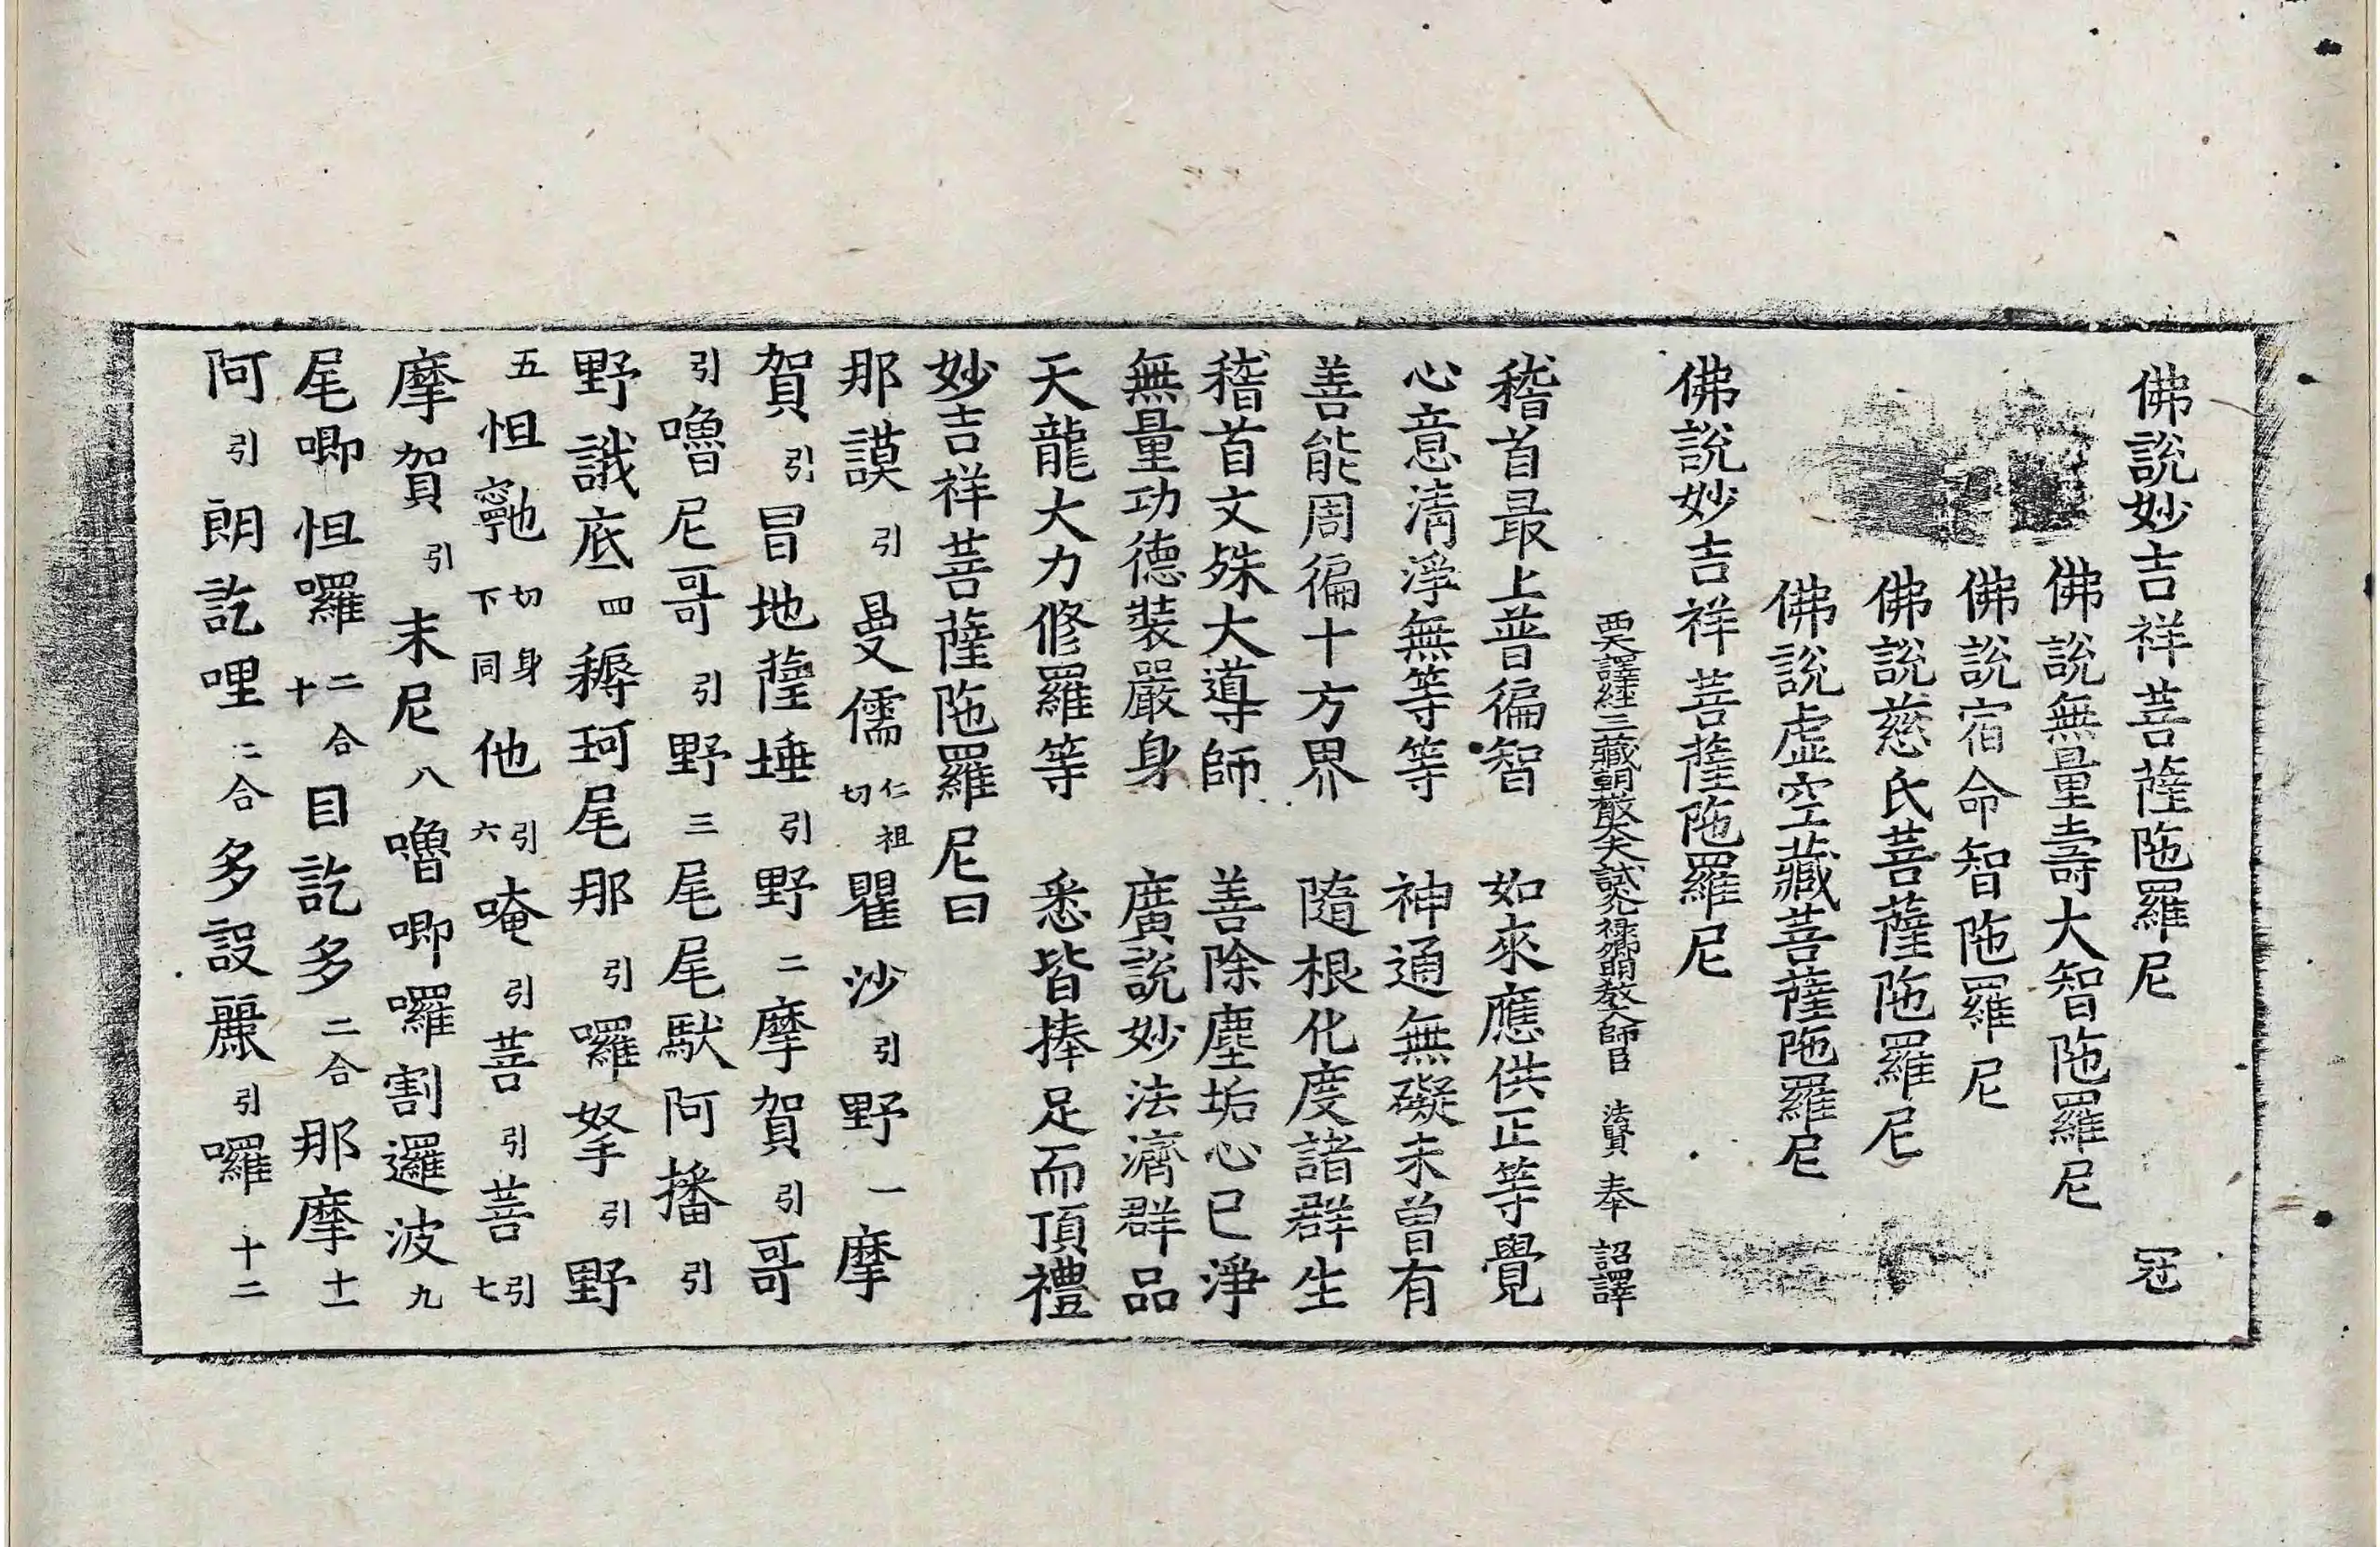 佛說妙吉祥菩薩陁羅尼 冠
佛說無量壽大智陁羅尼
佛說宿命智陁羅尼
佛說慈氏菩薩陁羅尼
佛說虛空藏菩薩陁羅尼
佛說妙吉祥菩薩陁羅尼
西天譯經三藏朝散大夫試光祿卿明教大師臣 法賢 奉 詔譯
稽首最上普徧智 如來應供正等覺
心意清淨無等等 神通無礙未曾有
善能周徧十方界 隨根化度諸群生
稽首文殊大導師 善除塵垢心已淨
無量功德裝嚴身 廣說妙法濟群品
天龍大力修羅等 悉皆捧足而頂禮
妙吉祥菩薩陁羅尼曰
那謨引曼儒仁祖切瞿沙引野一摩
賀引冒地薩埵引野二摩賀引哥
引嚕尼哥引野三尾尾馱阿播引
野誐底四耨珂尾那引囉拏引野
五怛𡫸切身下同他引六唵引菩引菩引七
摩賀引末尼八嚕唧囉割邏波九
尾唧怛囉二合十目訖多二合那摩十一
阿引朗訖哩二合多設麗引囉十二